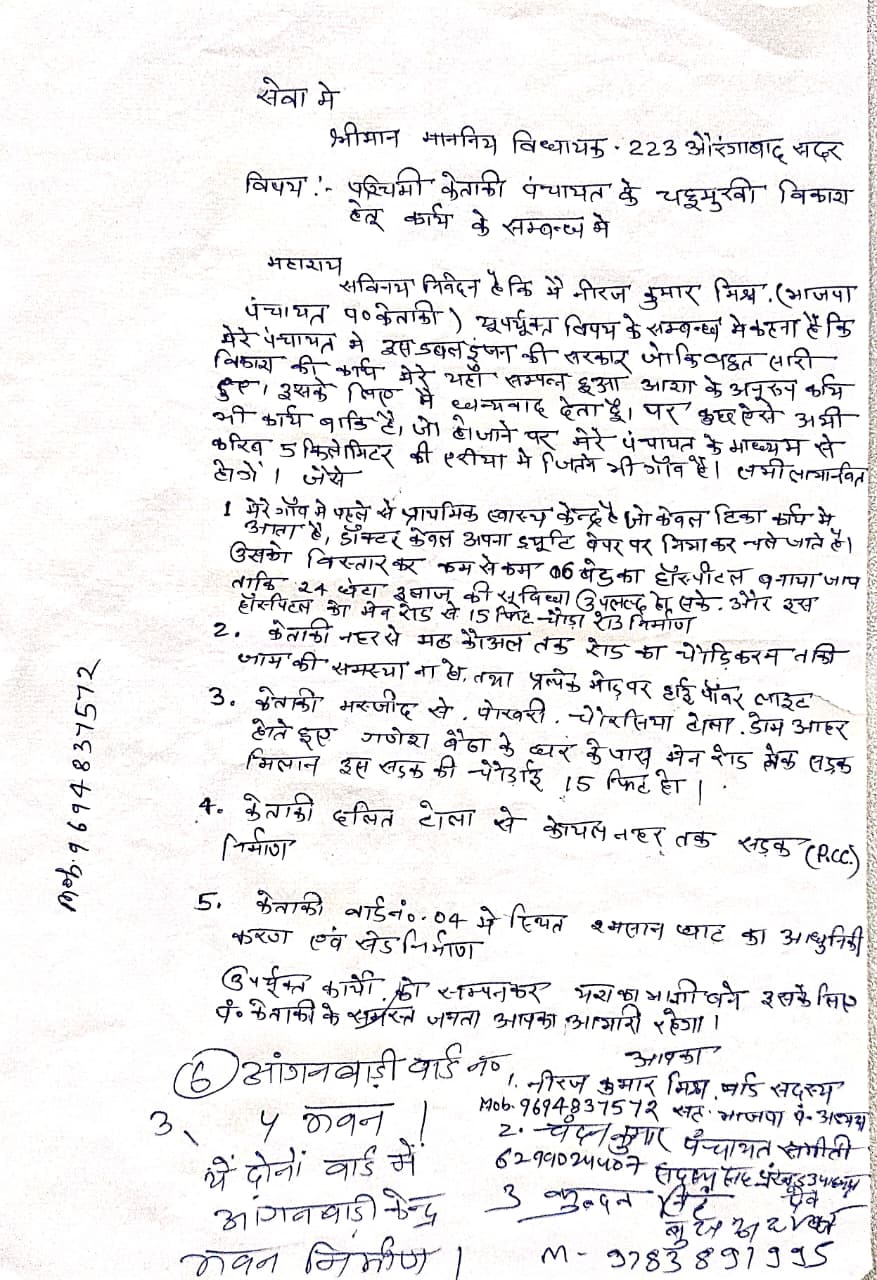 सेवा मे
श्रीमान माननिय विधायक - 223 औरंगाबाद सदर
विषय :- पश्चिमी केताकी पंचायत के चहुमुखी विकाश
हेतू कार्य के सम्बन्ध मे
महाशय
सविनय निवेदन है कि मै नीरज कुमार मिश्र. (भाजपा
पंचायत प० केताकी) उपर्युक्त विषय के सम्बन्ध मे कहना है कि
मेरे पंचायत मे इस डबल इंजन की सरकार जो कि बहुत सारी
विकाश की कार्य मेरे यहाँ सम्पन्न हुआ आशा के अनुरुप कार्य
हुए। इसके लिए मै ध्यन्यवाद देता हूँ। पर कुछ ऐसे अभी
भी कार्य बाकि है, जो हो जाने पर मेरे पंचायत के माध्यम से
करिब 5 किलोमिटर की एरीया मे जितने भी गाँव है। सभी लाभान्वित
होगें। जैसे
1 मेरे गाँव मे पहले से प्राथमिक स्वास्थ केन्द्र है जो केवल टिका कार्य मे
आता है, डॉक्टर केवल अपना ड्यूटि पेपर पर निभा कर चले जाते है।
उसको विस्तार कर कम से कम 06 बेड का हॉस्पीटल बनाया जाय
ताकि 24 घंटा इलाज की सुविधा उपलब्द हो सके. और इस
हॉस्पिटल का मेन रोड से 15 फिट चौड़ा रोड निर्माण
2. केताकी नहर से मठ कोअल तक रोड का चौड़िकरण ताकी
जाम की समस्या ना हो, तथा प्रत्येक मोड़ पर हाई पॉवर लाइट
3. केताकी मस्जीद से. पोखरी. चौरसिया टोला. डोम आहर
होते हुए गणेश बैठा के घर के पास मेन रोड लेक सड़क
मिलान इस सड़क की चौड़ाई 15 फिट हो।
4. केताकी दलित टोला से कोयल नहर तक सड़क (P.CC.)
निर्माण
5. केताकी वार्ड नं०. 04 मे स्थित श्मसान घाट का आधुनिकी
करण एवं सेड निर्माण
उपर्युक्त कार्यो को सम्पन कर यश का भागी बने इसके लिए
पं० केताकी के समस्त जनता आपका आभारी रहेगा।
6 आंगनबाड़ी वार्ड न०
3, ५ भवन।
ये दोनों वार्ड में
आंगनबाड़ी केन्द्र
भवन निर्माण।
आपका
1. नीरज कुमार मिश्र. वार्ड सदस्य
Mob. 9694837572 सह. भाजपा पं. अध्यक्ष
2. चंदन कुमार पंचायत समीती
6299024407 सदस्य सह प्रखंड उपाध्यक्ष
3 कुन्दन सिंह
M - 9783891995
Mob. 9694837572